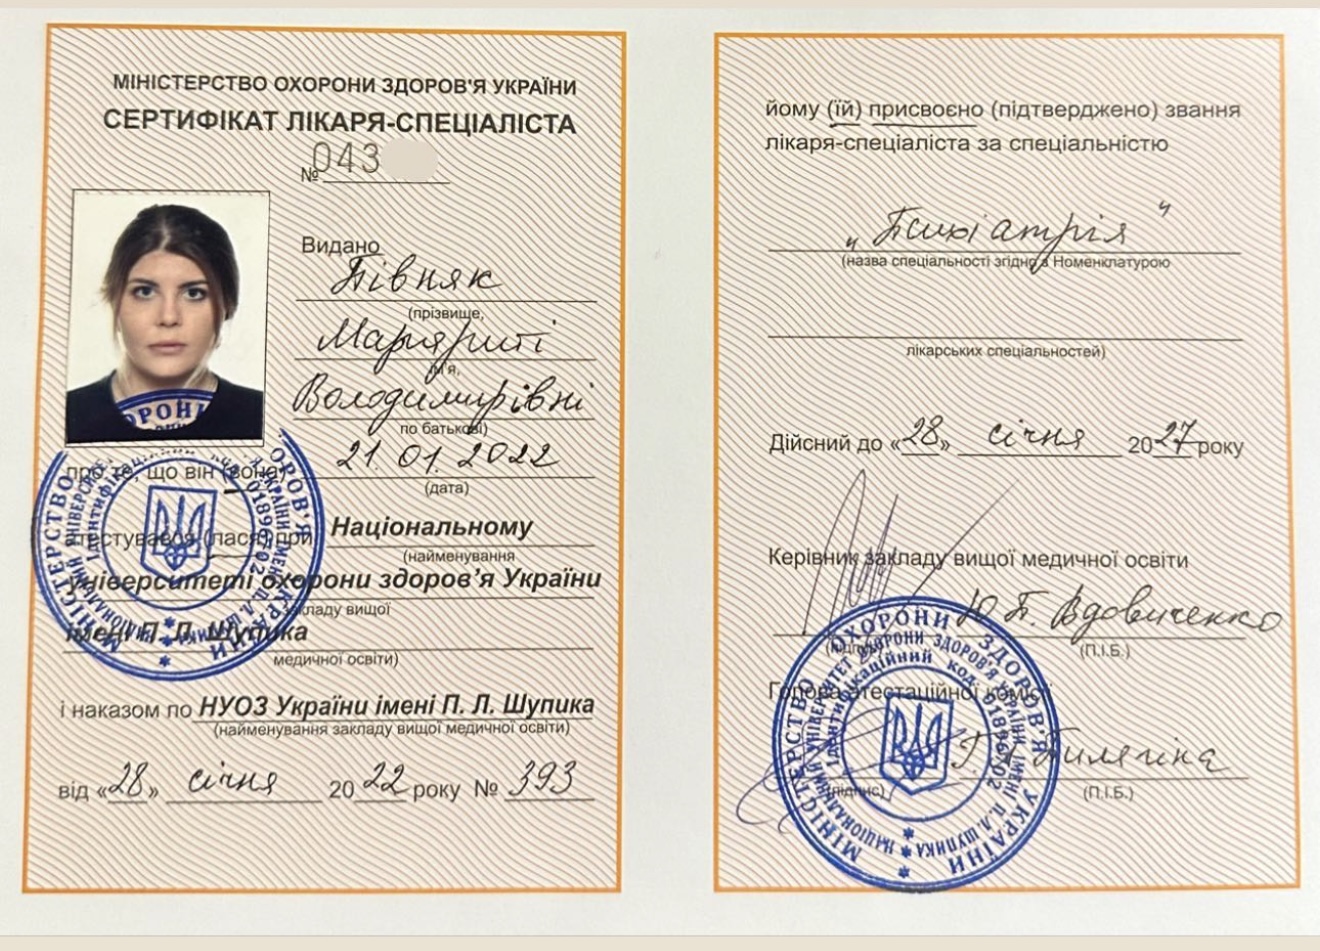 МІНІСТЕРСТВО ОХОРОНИ ЗДОРОВ'Я УКРАЇНИ
СЕРТИФІКАТ ЛІКАРЯ-СПЕЦІАЛІСТА
№ 043
Видано
Півняк
(прізвище,
Маргариті
ім'я,
Володимирівні
по батькові)
21.01.2022
про те, що він (вона)
(дата)
атестувався (лася) при Національному
(найменування
університеті охорони здоров'я України
закладу вищої
імені П. Л. Шупика
медичної освіти)
і наказом по НУОЗ України імені П. Л. Шупика
(найменування закладу вищої медичної освіти)
від «28» січня 2022 року № 393
йому (їй) присвоєно (підтверджено) звання
лікаря-спеціаліста за спеціальністю
„Психіатрія"
(назва спеціальності згідно з Номенклатурою
лікарських спеціальностей)
Дійсний до «28» січня 2027 року
Керівник закладу вищої медичної освіти
Вдовиченко
(підпис)
(П.І.Б.)
Голова атестаційної комісії
Пилягіна
(підпис)
(П.І.Б.)
МІНІСТЕРСТВО ОХОРОНИ ЗДОРОВ'Я УКРАЇНИ
НАЦІОНАЛЬНИЙ УНІВЕРСИТЕТ ОХОРОНИ ЗДОРОВ'Я УКРАЇНИ ІМЕНІ П.Л.ШУПИКА
Ідентифікаційний код 01896702